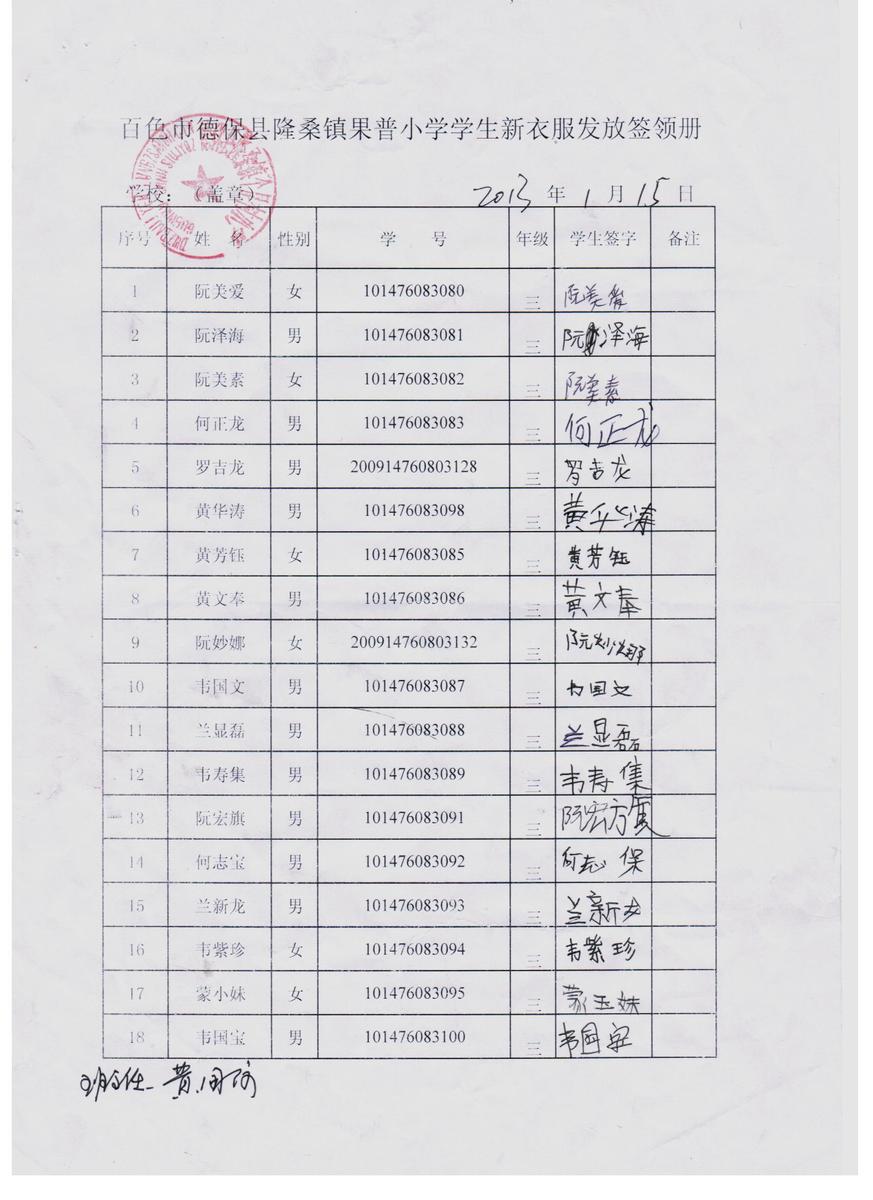 百色市德保县隆桑镇果普小学学生新衣服发放签领册
学校：（盖章） 2013 年 1 月 15 日
序号 姓 名 性别 学 号 年级 学生签字 备注
1 阮美爱 女 101476083080 三 阮美爱
2 阮泽海 男 101476083081 三 阮泽海
3 阮美素 女 101476083082 三 阮美素
4 何正龙 男 101476083083 三 何正龙
5 罗吉龙 男 200914760803128 三 罗吉龙
6 黄华涛 男 101476083098 三 黄华涛
7 黄芳钰 女 101476083085 三 黄芳钰
8 黄文奉 男 101476083086 三 黄文奉
9 阮妙娜 女 200914760803132 三 阮妙娜
10 韦国文 男 101476083087 三 韦国文
11 兰显磊 男 101476083088 三 兰显磊
12 韦寿集 男 101476083089 三 韦寿集
13 阮宏旗 男 101476083091 三 阮宏旗
14 何志宝 男 101476083092 三 何志保
15 兰新龙 男 101476083093 三 兰新龙
16 韦紫珍 女 101476083094 三 韦紫珍
17 蒙小妹 女 101476083095 三 蒙玉妹
18 韦国宝 男 101476083100 三 韦国宝
班主任